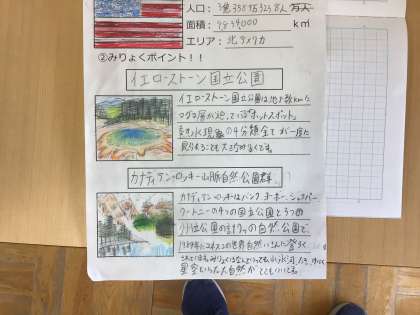 人口：3億3587万3238人
面積：9834000 km²
エリア：北アメリカ
②みりょくポイント！！
イエローストーン国立公園
イエローストーン国立公園は地下数kmに
マグマ層が迫っているホットスポット。
熱水現象の4分類全てが一度に
見られることも大きな
カナディアン・ロッキー山脈自然公園群
カナディアンロッキーはバンフ、ヨーホー、ジャスパー、
クートニーの4つの国立公園と3つの
州立公園の計7つの自然公園で、
1984年にユネスコの世界自然いさんに登ろく
されています。みりょくはなんといっても 氷河、
星空といった大自然がとてもいいです。